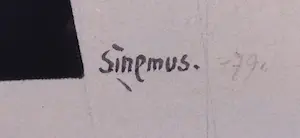 Sinemus. -79.